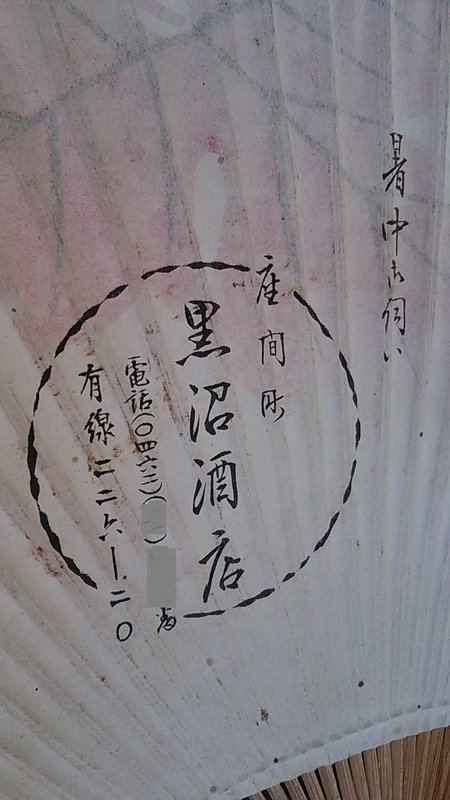 暑中お伺い
座間町
黒沼酒店
電話(〇四六二)( ) 番
有線二二六ー二〇